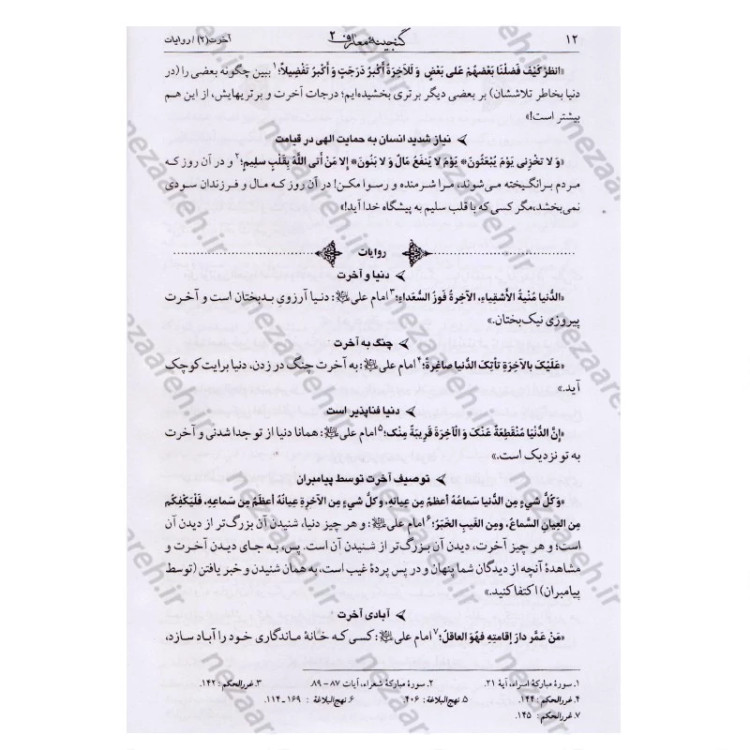 ۱۲ گنجینهٔ معارف ۲ آخرت (۲) / روایات
«انظُرْ كَيْفَ فَضَّلْنَا بَعْضَهُمْ عَلَى بَعْضٍ وَ لَلآخِرَةُ أَكْبَرُ دَرَجَتٍ وَ أَكْبَرُ تَفْضِيلاً؛¹ ببین چگونه بعضی را (در
دنیا بخاطر تلاششان) بر بعضی دیگر برتری بخشیده‌ایم؛ درجات آخرت و برتریهایش، از این هم
بیشتر است!»
➤ نیاز شدید انسان به حمایت الهی در قیامت
«وَ لا تُخْزِنِی یَوْمَ یُبْعَثُونَ* یَوْمَ لا یَنفَعُ مَالٌ وَ لا بَنُونَ* إِلا مَنْ أَتَى اللَّهَ بِقَلْبٍ سلِیمٍ؛² و در آن روز که
مردم برانگیخته می‌شوند، مرا شرمنده و رسوا مکن! در آن روز که مال و فرزندان سودی
نمی‌بخشد، مگر کسی که با قلب سلیم به پیشگاه خدا آید!»
روایات
➤ دنیا و آخرت
«الدُّنیا مُنْیَةُ الأَشقِیاءِ، الآخِرَةُ فَوزُ السُّعَداءِ؛³ امام علی ﷺ: دنیا آرزوی بدبختان است و آخرت
پیروزی نیک‌بختان.»
➤ چنگ به آخرت
«عَلَیْکَ بِالآخِرَةِ تَأْتِکَ الدُّنیا صاغِرَةً؛⁴ امام علی ﷺ: به آخرت چنگ در زدن، دنیا برایت کوچک
آید.»
➤ دنیا فناپذیر است
«إِنَّ الدُّنْیَا مُنْقَطِعَةٌ عَنْکَ وَ الْآخِرَةَ قَرِیبَةٌ مِنْک؛⁵ امام علی ﷺ: همانا دنیا از تو جدا شدنی و آخرت
به تو نزدیک است.»
➤ توصیف آخرت توسط پیامبران
«وَ کُلُّ شیءٍ مِن الدُّنیا سَماعُهُ أعظَمُ مِن عِیانِهِ، وَ کلُّ شیءٍ مِن الآخِرَةِ عِیانُهُ أعظَمُ مِن سَماعِهِ، فَلْیَکْفِکُم
مِن العِیانِ السَّماعُ، ومِن الغَیبِ الخَبَرُ؛⁶ امام علی ﷺ: و هر چیز دنیا، شنیدن آن بزرگ‌تر از دیدن آن
است؛ و هر چیز آخرت، دیدن آن بزرگ‌تر از شنیدن آن است. پس، به جای دیدن آخرت و
مشاهدهٔ آنچه از دیدگان شما پنهان و در پس پردهٔ غیب است، به همان شنیدن و خبر یافتن (توسط
پیامبران) اکتفا کنید.»
➤ آبادی آخرت
«مَن عَمَّرَ دارَ إقامَتِهِ فهُوَ العاقلُ؛⁷ امام علی ﷺ: کسی که خانهٔ ماندگاری خود را آباد سازد،
۱. سورهٔ مبارکهٔ اسراء، آیهٔ ۲۱. ۲. سورهٔ مبارکهٔ شعراء، آیات ۸۷ - ۸۹ ۳. غررالحکم: ۱۴۲.
۴. غررالحکم: ۱۴۴. ۵. نهج البلاغة: ۴۰۶. ۶. نهج البلاغة: ۱۶۹ـ۱۱۴.
۷. غررالحکم: ۱۴۵.
nezaareh.ir